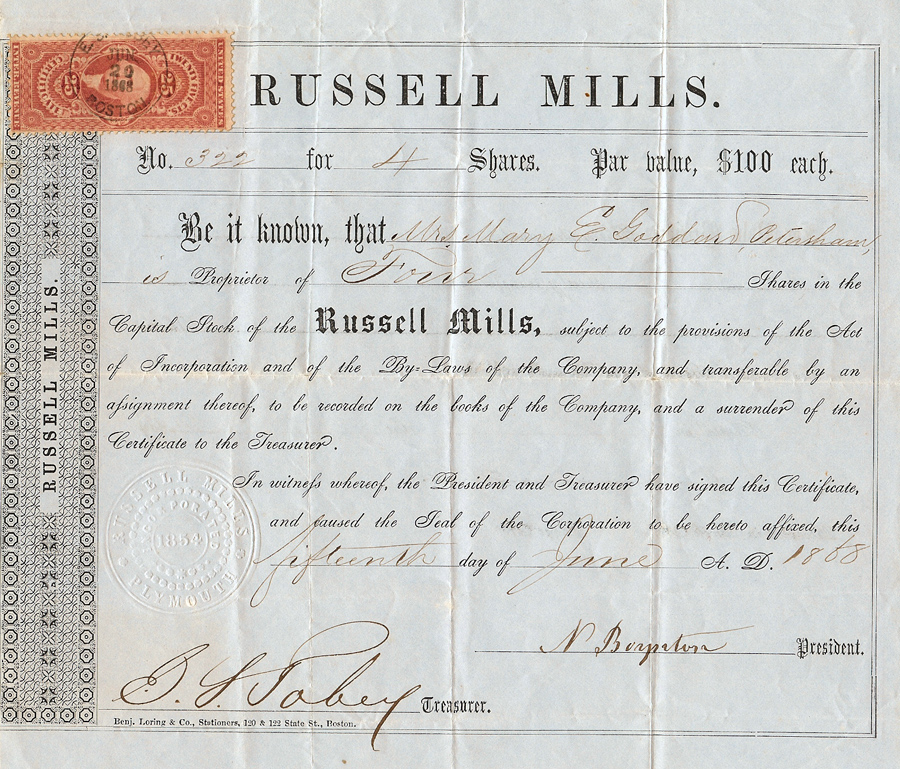 25 25
JUN
20
1868
BOSTON
RUSSELL MILLS.
No. 322 for 4 Shares. Par value, $100 each.
Be it known, that Mrs. Mary E. Goddard, Petersham,
is Proprietor of Four Shares in the
Capital Stock of the Russell Mills, subject to the provisions of the Act
of Incorporation and of the By-Laws of the Company, and transferable by an
assignment thereof, to be recorded on the books of the Company, and a surrender of this
Certificate to the Treasurer.
In witness whereof, the President and Treasurer have signed this Certificate,
and caused the Seal of the Corporation to be hereto affixed, this
fifteenth day of June A. D. 1868
RUSSELL MILLS
INCORPORATED
1854
PLYMOUTH
N Boynton President.
Tobey Treasurer.
Benj. Loring & Co., Stationers, 120 & 122 State St., Boston.
RUSSELL MILLS.